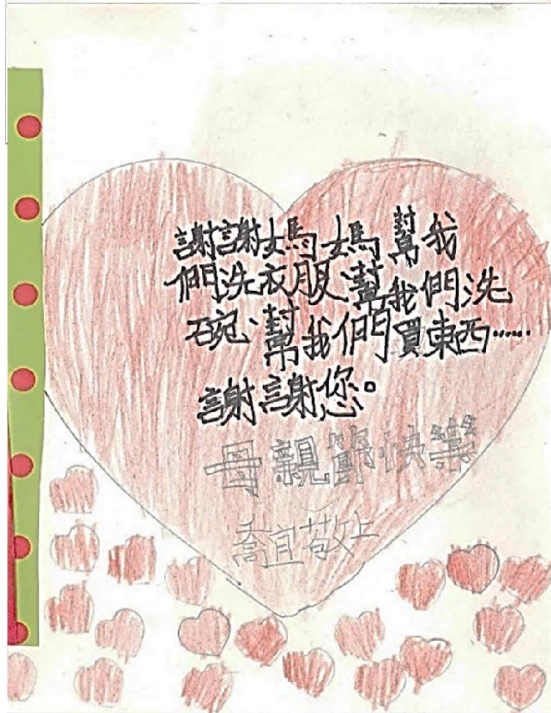 謝謝媽媽幫我
們洗衣服、幫我們洗
碗、幫我們買東西……
謝謝您。
母親節快樂
喬宜敬上